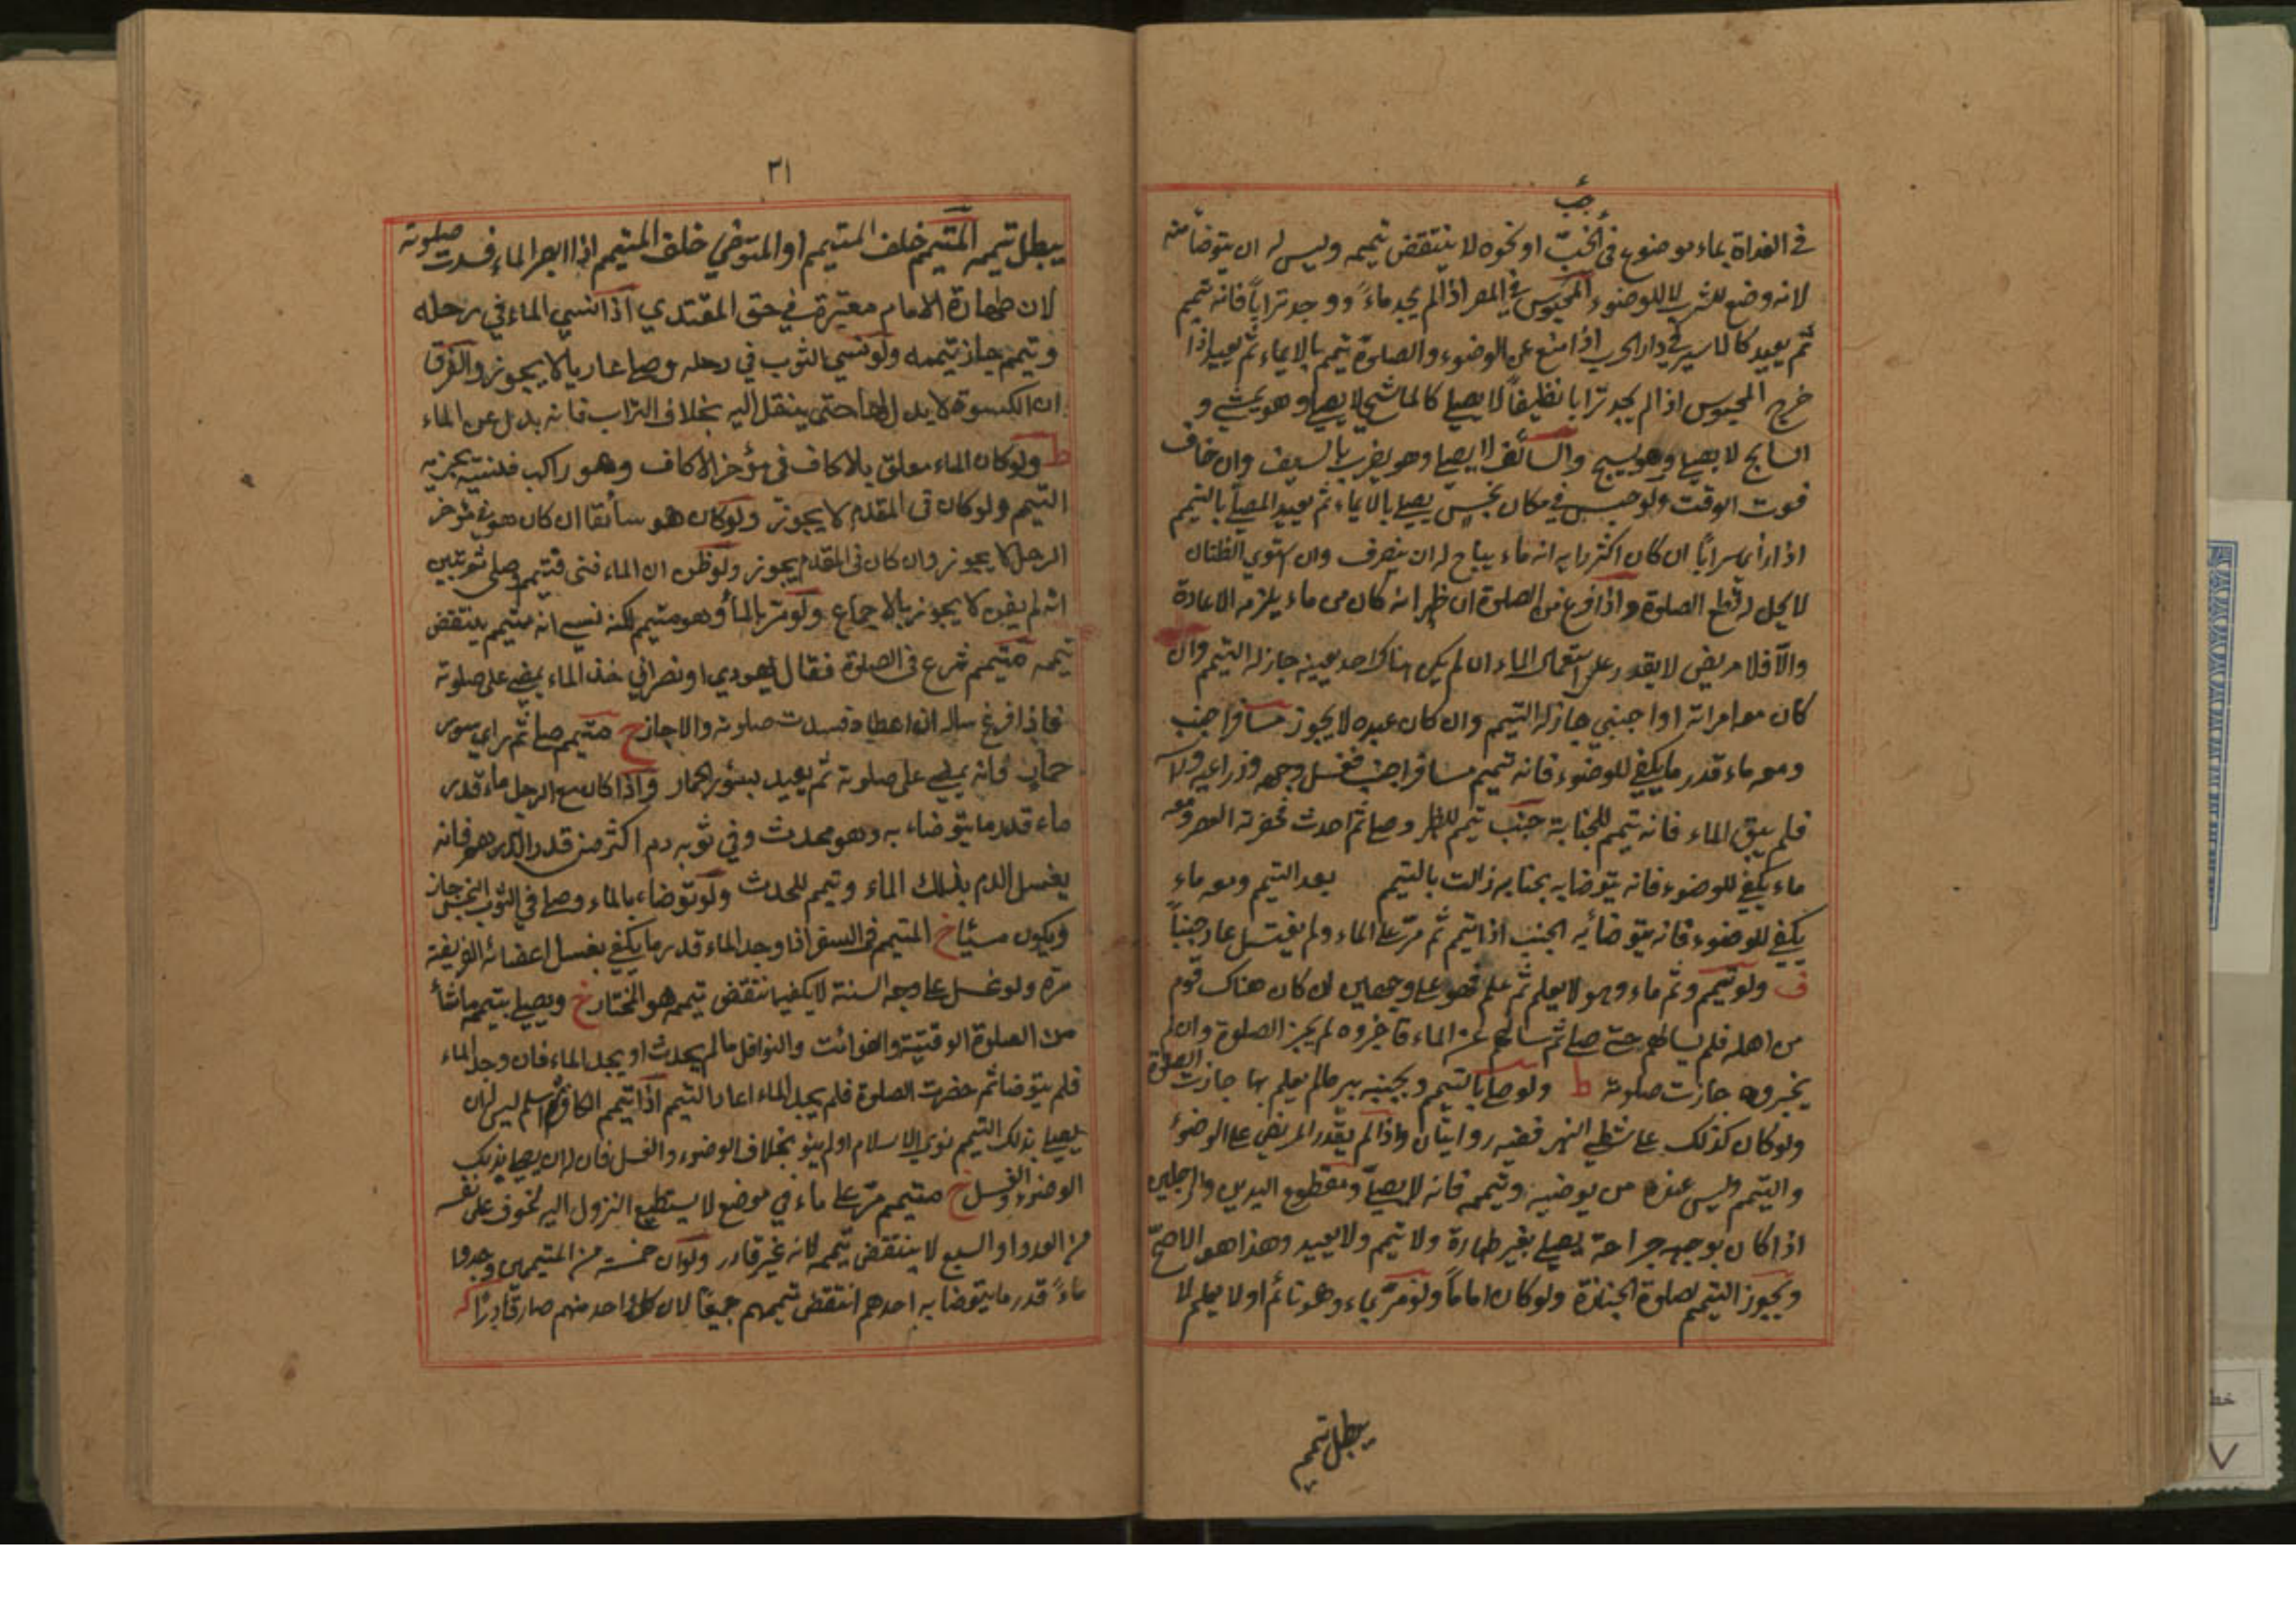 جب
في الفداة بماء موضوع في الخبّ او نحوه لا ينتقض تيممه وليس له ان يتوضأ منه
لانه وضع للشرب لا للوضوء المحبوس في المصر اذا لم يجد ماءً ووجد تراباً فانه تيمم
ثم يعيد كالاسير في دار الحرب اذا منع عن الوضوء والصلوة تيمم بالايماء ثم يعيد اذا
خرج المحبوس اذا لم يجد ترابا نظيفاً لا يصلي كالماشي لا يصلي وهو يمشي و
السابح لا يصلي وهو يسبح والسائف لا يصلي وهو يضرب بالسيف وان خاف
فوت الوقت ولو حبس في مكان نجس يصلي بالايماء ثم يعيد المصلّي بالتيمم
اذا رأي سراباً ان كان اكثر رايه انه ماء يباح له ان ينصرف وان استوي الظنان
لا يحل له قطع الصلوة واذا فرغ من الصلوة ان ظهر انه كان من ماء يلزمه الاعادة
والّا فلا مريض لا يقدر على استعمال الماء ان لم يكن هناك احد يعينه جاز له التيمم وان
كان معه امراته او اجنبي جاز له التيمم وان كان عبده لا يجوز مسافر اجنب
ومعه ماء قدر ما يكفي للوضوء فانه تيمم مسافر اجنب فغسل وجهه وذراعيه ولا
فلم يبق الماء فانه تيمم للجنابة جنب تيمم للظهر وصلي ثم احدث فحضرته العصر ومعه
ماء يكفي للوضوء فانه يتوضا به بجنابه زالت بالتيمم بعد التيمم ومعه ماء
يكفي للوضوء فانه يتوضائه الجنب اذا تيمم ثم مرّ على الماء ولم يغتسل عاد جنباً
ف ولو تيمم وثم ماء وهو لا يعلم ثم علم فهو على وجهين ان كان هناك قوم
من اهله فلم يسالهم حتي صلي ثم سالهم عن الماء فاخبروه لم يجز الصلوة وان لم
يخبروه جازت صلوته ط ولو صلي بالتيمم وبجنبه بير مالم يعلم بها جازت الصلوة
ولو كان كذلك على شطي النهر ففيه روايتان واذا لم يقدر المريض علي الوضوء
والتيمم وليس عنده من يوضيه وتيممه فانه لا يصلّي ومقطوع اليدين والرجلين
اذا كان بوجهه جراحة يصلي بغير طهارة ولا تيمم ولا يعيد وهذا هو الاصحّ
ويجوز التيمم لصلوة الجنازة ولو كان اماماً ولو مرّ بماء وهو نائم او لا يعلم لا
يبطل تيمم
٣١
يبطل تيممه المتيمم خلف المتيمم او المتوضي خلف المتيمم اذا ابصر الماء فسدت صلوته
لان طهارة الامام معتبرة في حق المقتدي اذا نسي الماء في رحله
وتيمم جاز تيممه ولو نسي الثوب في رحله وصلي عاريا لا يجوز والفرق
ان الكسوة لا بدل لها حتى ينقل اليه بخلاف التراب فانه بدل عن الماء
ط ولو كان الماء معلق بالاكاف في مؤخر الاكاف وهو راكب فنسيه يجزيه
التيمم ولو كان في المقدم لا يجوز ولو كان هو سائقا ان كان هو في مؤخر
الرحل لا يجوز وان كان في المقدم يجوز ولو ظن ان الماء فني فتيمم وصلي ثم تبين
انه لم يفن لا يجوز بالاجماع ولو مرّ بالمأ وهو متيمم لكنه نسي انه متيمم ينتقض
تيممه متيمم شرع في الصلوة فقال يهودي او نصراني خذ الماء يمضي على صلوته
فاذا فرغ ساله ان اعطاه فسدت صلوته والا جاز خ متيمم صلي ثم راي سور
حمار فانه يمضي على صلوته ثم يعيد بسؤر الحمار واذا كان مع الرجل ماء قدر
ماء قدر ما يتوضاء به وهو محدث وفي ثوبه دم اكثر من قدر الدرهم فانه
يغسل الدم بذلك الماء وتيمم للحدث ولو توضاء بالماء وصلي في الثوب النجس جاز
ويكون مسئيا خ المتيمم في السفر اذا وجد الماء قدر ما يكفي بغسل اعضائه الفريضة
مرة ولو غسل على وجه السنة لا يكفيه انتقض تيممه هو المختار خ ويصلي بتيممه ماشأ
من الصلوة الوقتية والفوائت والنوافل مالم يحدث او يجد الماء فان وجد الماء
فلم يتوضا ثم حضرت الصلوة فلم يجد الماء اعاد التيمم اذا تيمم الكافر ثم اسلم ليس له ان
يصلي بذلك التيمم نوي الاسلام او لم ينو بخلاف الوضوء والغسل فان له ان يصلي بذلك
الوضوء والغسل خ متيمم مرّ علي ماء في موضع لا يستطيع النزول اليه لخوف على نفسه
من العدو او السبع لا ينتقض تيممه لانه غير قادر ولو ان خمسة من المتيممين وجدوا
ماءً قدر ما يتوضا به احدهم انتقض تيممهم جميعاً لان كل واحد منهم صار قادراً